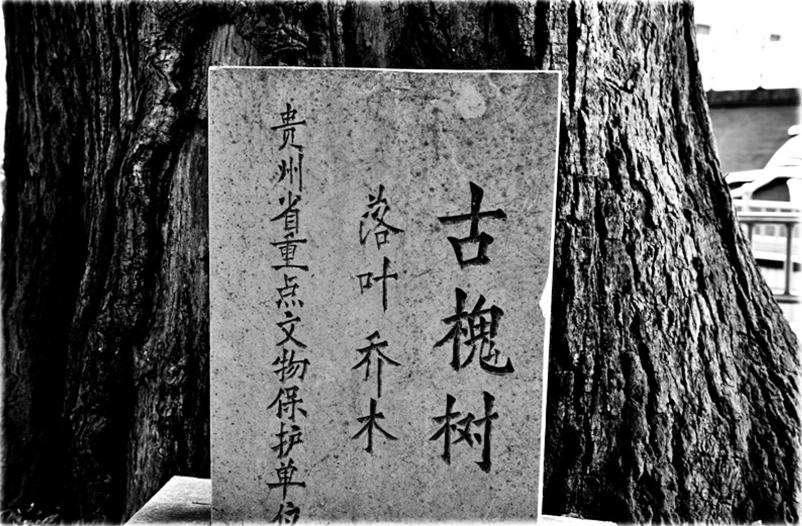 古槐树
落叶乔木
贵州省重点文物保护单位